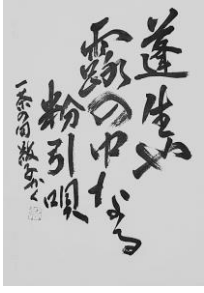 蓬生や
露の中なる
粉引唄
一茶の句